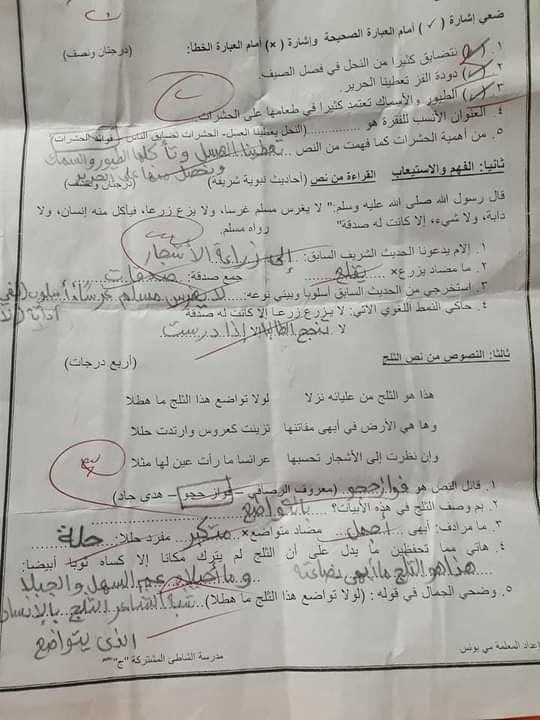 ضعي إشارة ( ✓ ) أمام العبارة الصحيحة وإشارة ( × ) أمام العبارة الخطأ: (درجتان ونصف)
١. نتضايق كثيرا من النحل في فصل الصيف.
٢. (✓) دودة القز تعطينا الحرير.
٣. (✓) الطيور والأسماك تعتمد كثيرا في طعامها على الحشرات.
٤. العنوان الأنسب للفقرة هو ............(النحل يعطينا العسل- الحشرات تضايق الناس- فوائد الحشرات)
٥. من أهمية الحشرات كما فهمت من النص ..تعطينا العسل وتأكلها الطيور والسمك
ونحصل منها على الحرير
ثانيا: الفهم والاستيعاب القراءة من نص (أحاديث نبوية شريفة) (درجتان ونصف)
قال رسول الله صلى الله عليه وسلم:" لا يغرس مسلم غرسا، ولا يزع زرعا، فيأكل منه إنسان، ولا
دابة، ولا شيء، إلا كانت له صدقة" رواه مسلم.
١. إلام يدعونا الحديث الشريف السابق: ..إلى زراعة الأشجار
٢. ما مضاد يزرع× ..يقلع.. جمع صدقة: ..صدقات..
٣. استخرجي من الحديث السابق أسلوبا وبيني نوعه: ..لا يغرس مسلم غرساً أسلوب نفي
أداته لا
٤. حاكي النمط اللغوي الآتي: لا يزرع زرعا إلا كانت له صدقة
لا ..تنجح الطالبة إلا إذا درست
ثالثا: النصوص من نص الثلج (أربع درجات)
هذا هو الثلج من عليائه نزلا لولا تواضع هذا الثلج ما هطلا
وها هي الأرض في أبهى مفاتنها تزينت كعروس وارتدت حللا
وإن نظرت إلى الأشجار تحسبها عرائسا ما رأت عين لها مثلا
١. قائل النص هو ..فواز حجو.. (معروف الرصافي – فواز حجو – هدى جاد)
٢. بم وصف الثلج في هذه الأبيات؟ ..بالتواضع
٣. ما مرادف: أبهى ..أجمل.. مضاد متواضع× ..متكبر.. مفرد حللا: حلة
٤. هاتي مما تحفظين ما يدل على أن الثلج لم يترك مكانا إلا كساه ثوبا أبيضا:
هذا هو الثلج ما أبهى نصاعته وما أجيلاه عم السهل والجبلا
٥. وضحي الجمال في قوله : (لولا تواضع هذا الثلج ما هطلا)..شبه الشاعر الثلج بالإنسان
الذي يتواضع
إعداد المعلمة مي يونس
مدرسة الشاطئ المشتركة "ج"